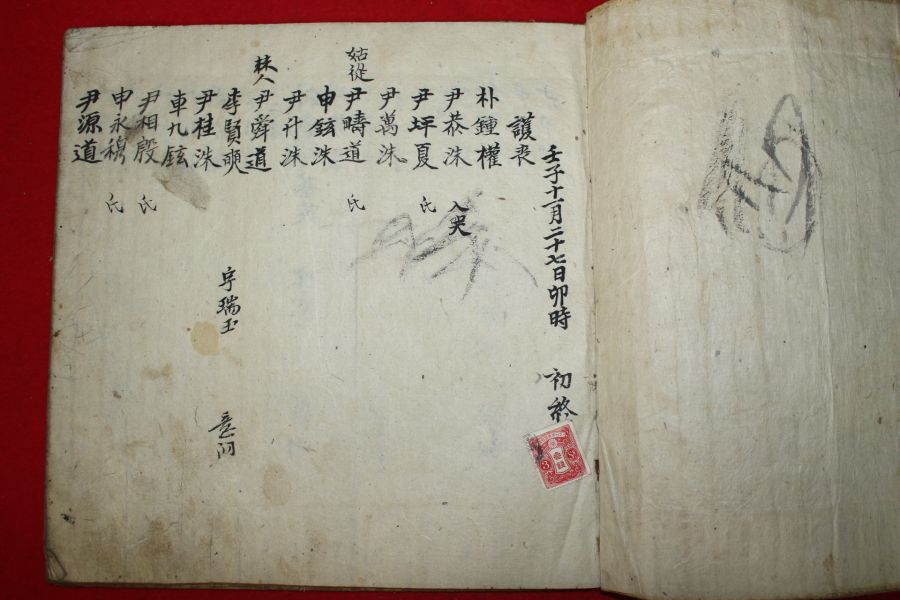 壬子十一月二十七日卯時 初終
護喪
朴鍾權
尹泰洙 入哭
尹坪夏 氏
尹萬洙
姑從 尹疇道 氏
申鉉洙
尹升洙
尹舜道
李賢奭 字瑞玉
尹桂洙
車九鉉
尹相殷 氏
申永穆 氏
尹源道